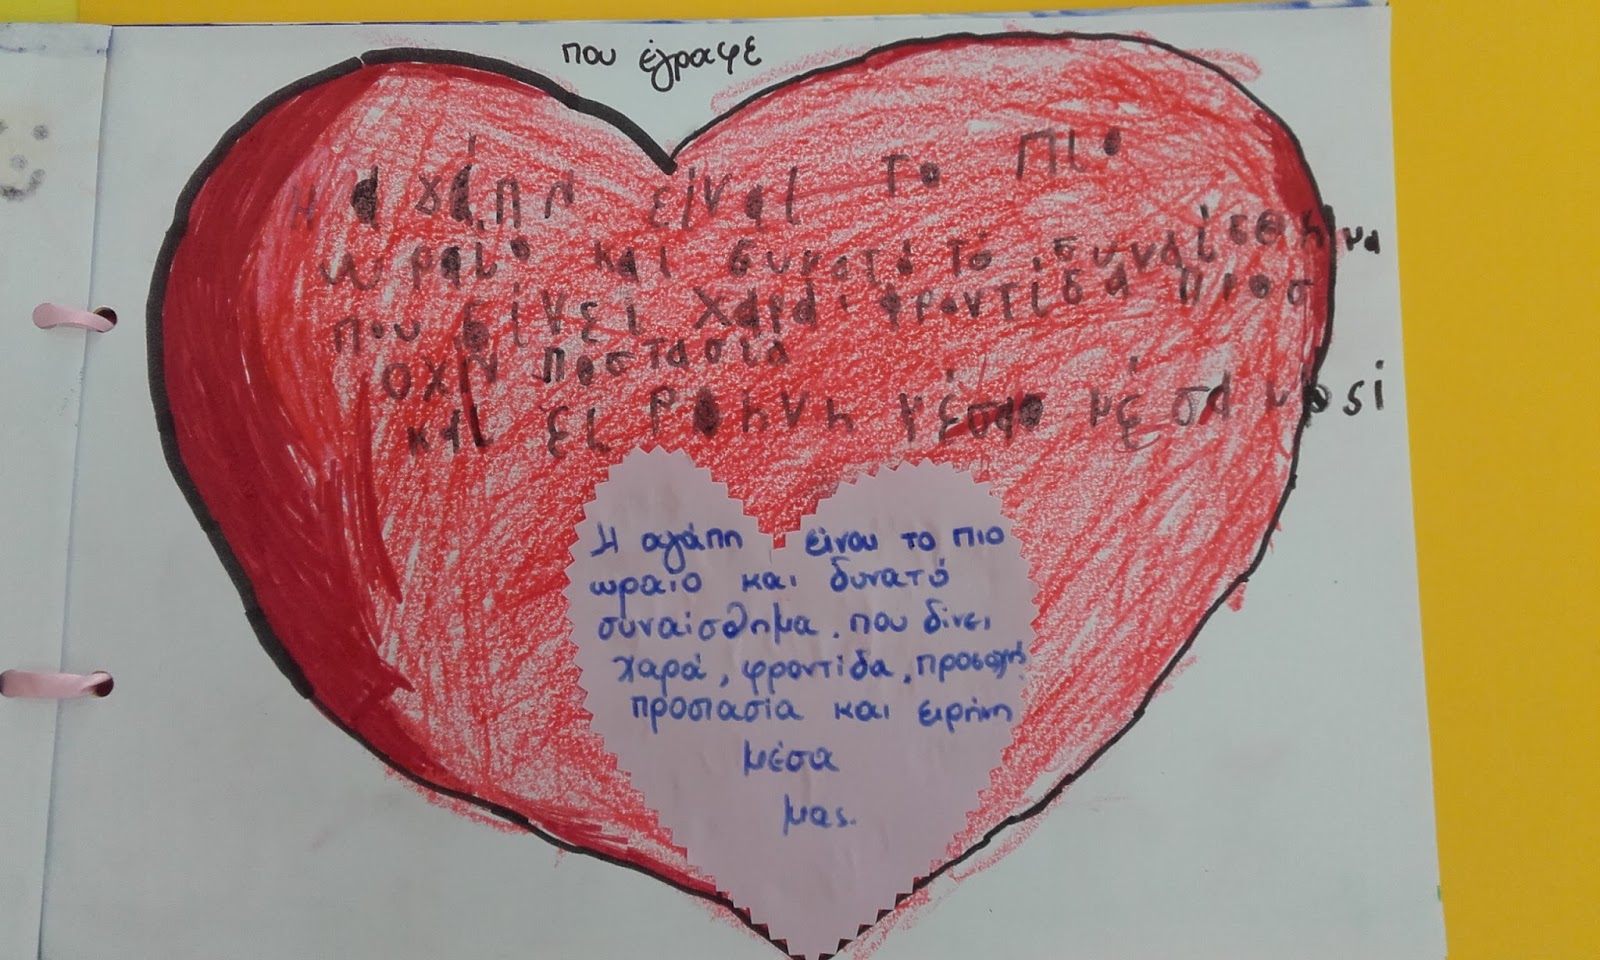 που έγραψε
Η αγάπη είναι το πιο
ωραίο και δυνατό το συναίσθημα
που δίνει χαρά, φροντίδα προσ
οχήν ποστασία
και ειρήνη μέσα
Η αγάπη είναι το πιο
ωραίο και δυνατό
συναίσθημα, που δίνει
χαρά, φροντίδα, προσοχή,
προστασία και ειρήνη
μέσα
μας.